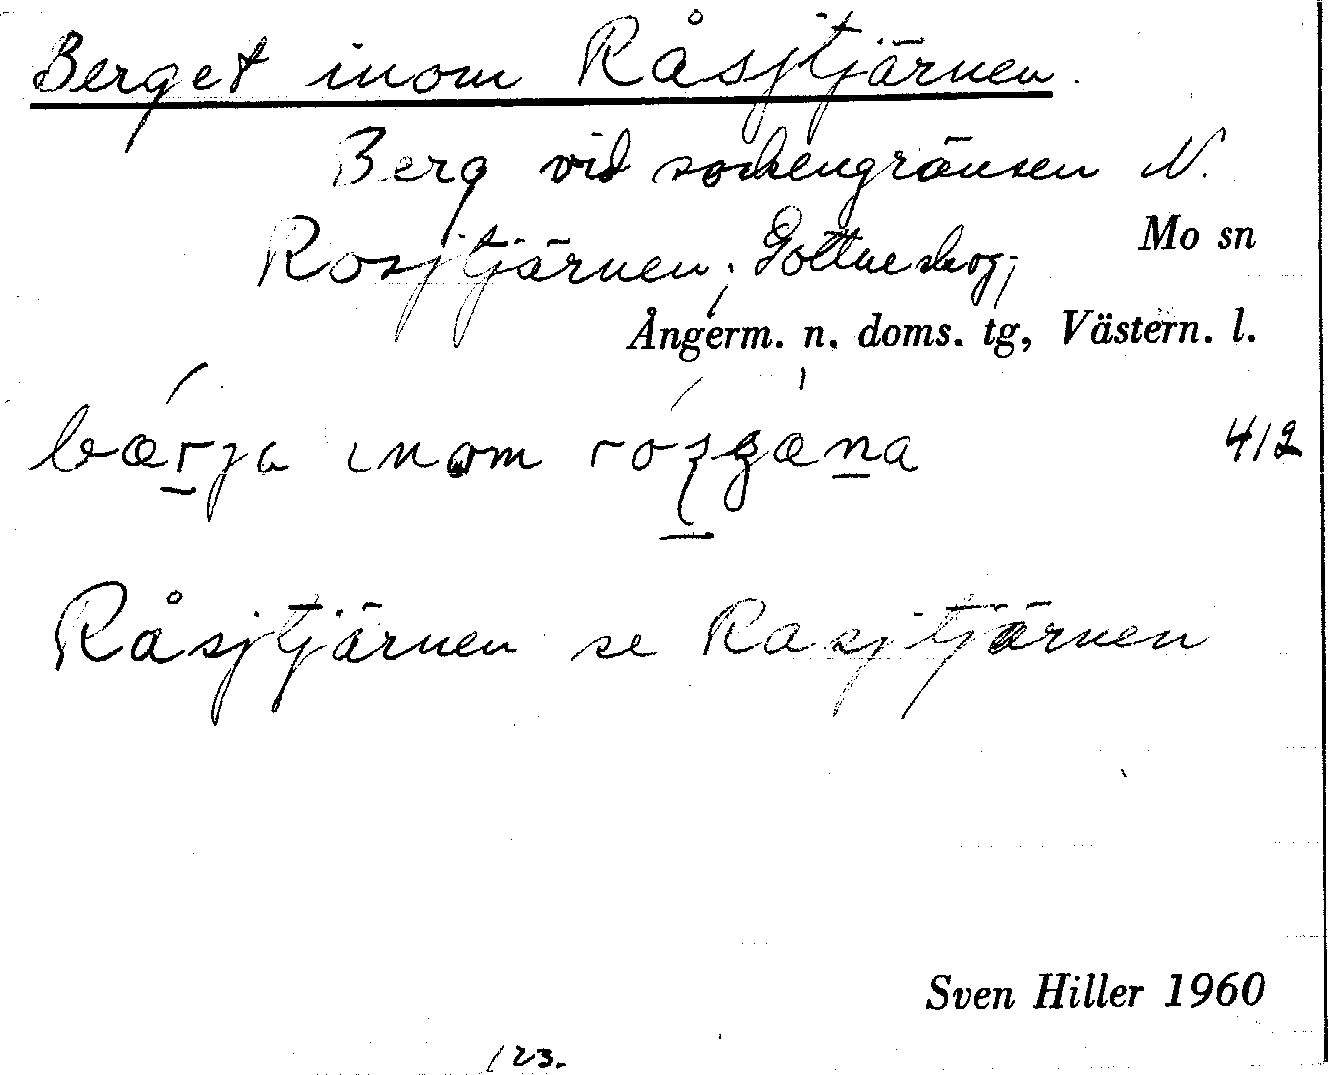 Berget inom Råsjtjärnen.
Berg vid sockengränsen N.
Rosjtjärnen; Gottneskog;
Mo sn
Ångerm. n. doms. tg, Västern. l.
inom
412
Råsjtjärnen se Rasjtjärnen
Sven Hiller 1960
123.